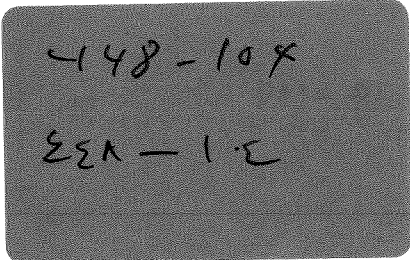 448 - 104
٤٤٨ — ١٠٤